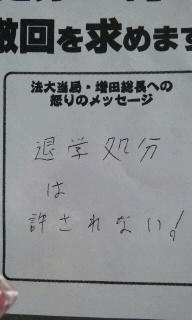 撤回を求めます
法大当局・増田総長への
怒りのメッセージ
退学処分
は
許されない!